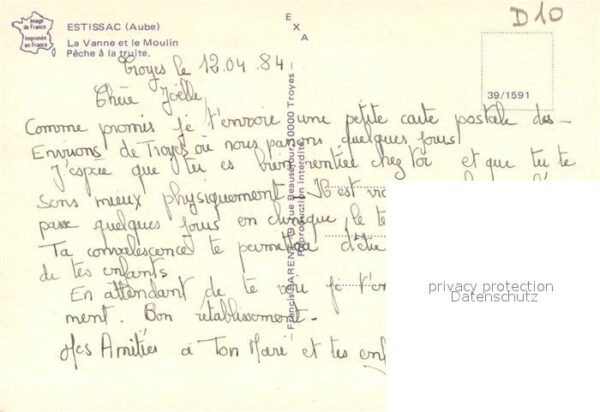 Image
de France
Imprimée
en France
ESTISSAC (Aube)
La Vanne et le Moulin
Pêche à la truite.
E
X
A
D10
39/1591
Troyes le 12.04.84.
Chère Joëlle,
Comme promis je t'envoie une petite carte postale des
Environs de Troyes où nous passons quelques jours
J'espère que tu es bien rentrée chez toi et que tu te
sens mieux physiquement. Il est
passé quelques jours en clinique, le
Ta convalescence te permettra d'être
de tes enfants
En attendant de te voir je t'em
ment. Bon rétablissement.
Mes Amitiés à Ton Mari et tes enf
Francis BARENT, 79 rue Beauséjour 10000 Troyes
Reproduction Interdite
privacy protection
Datenschutz